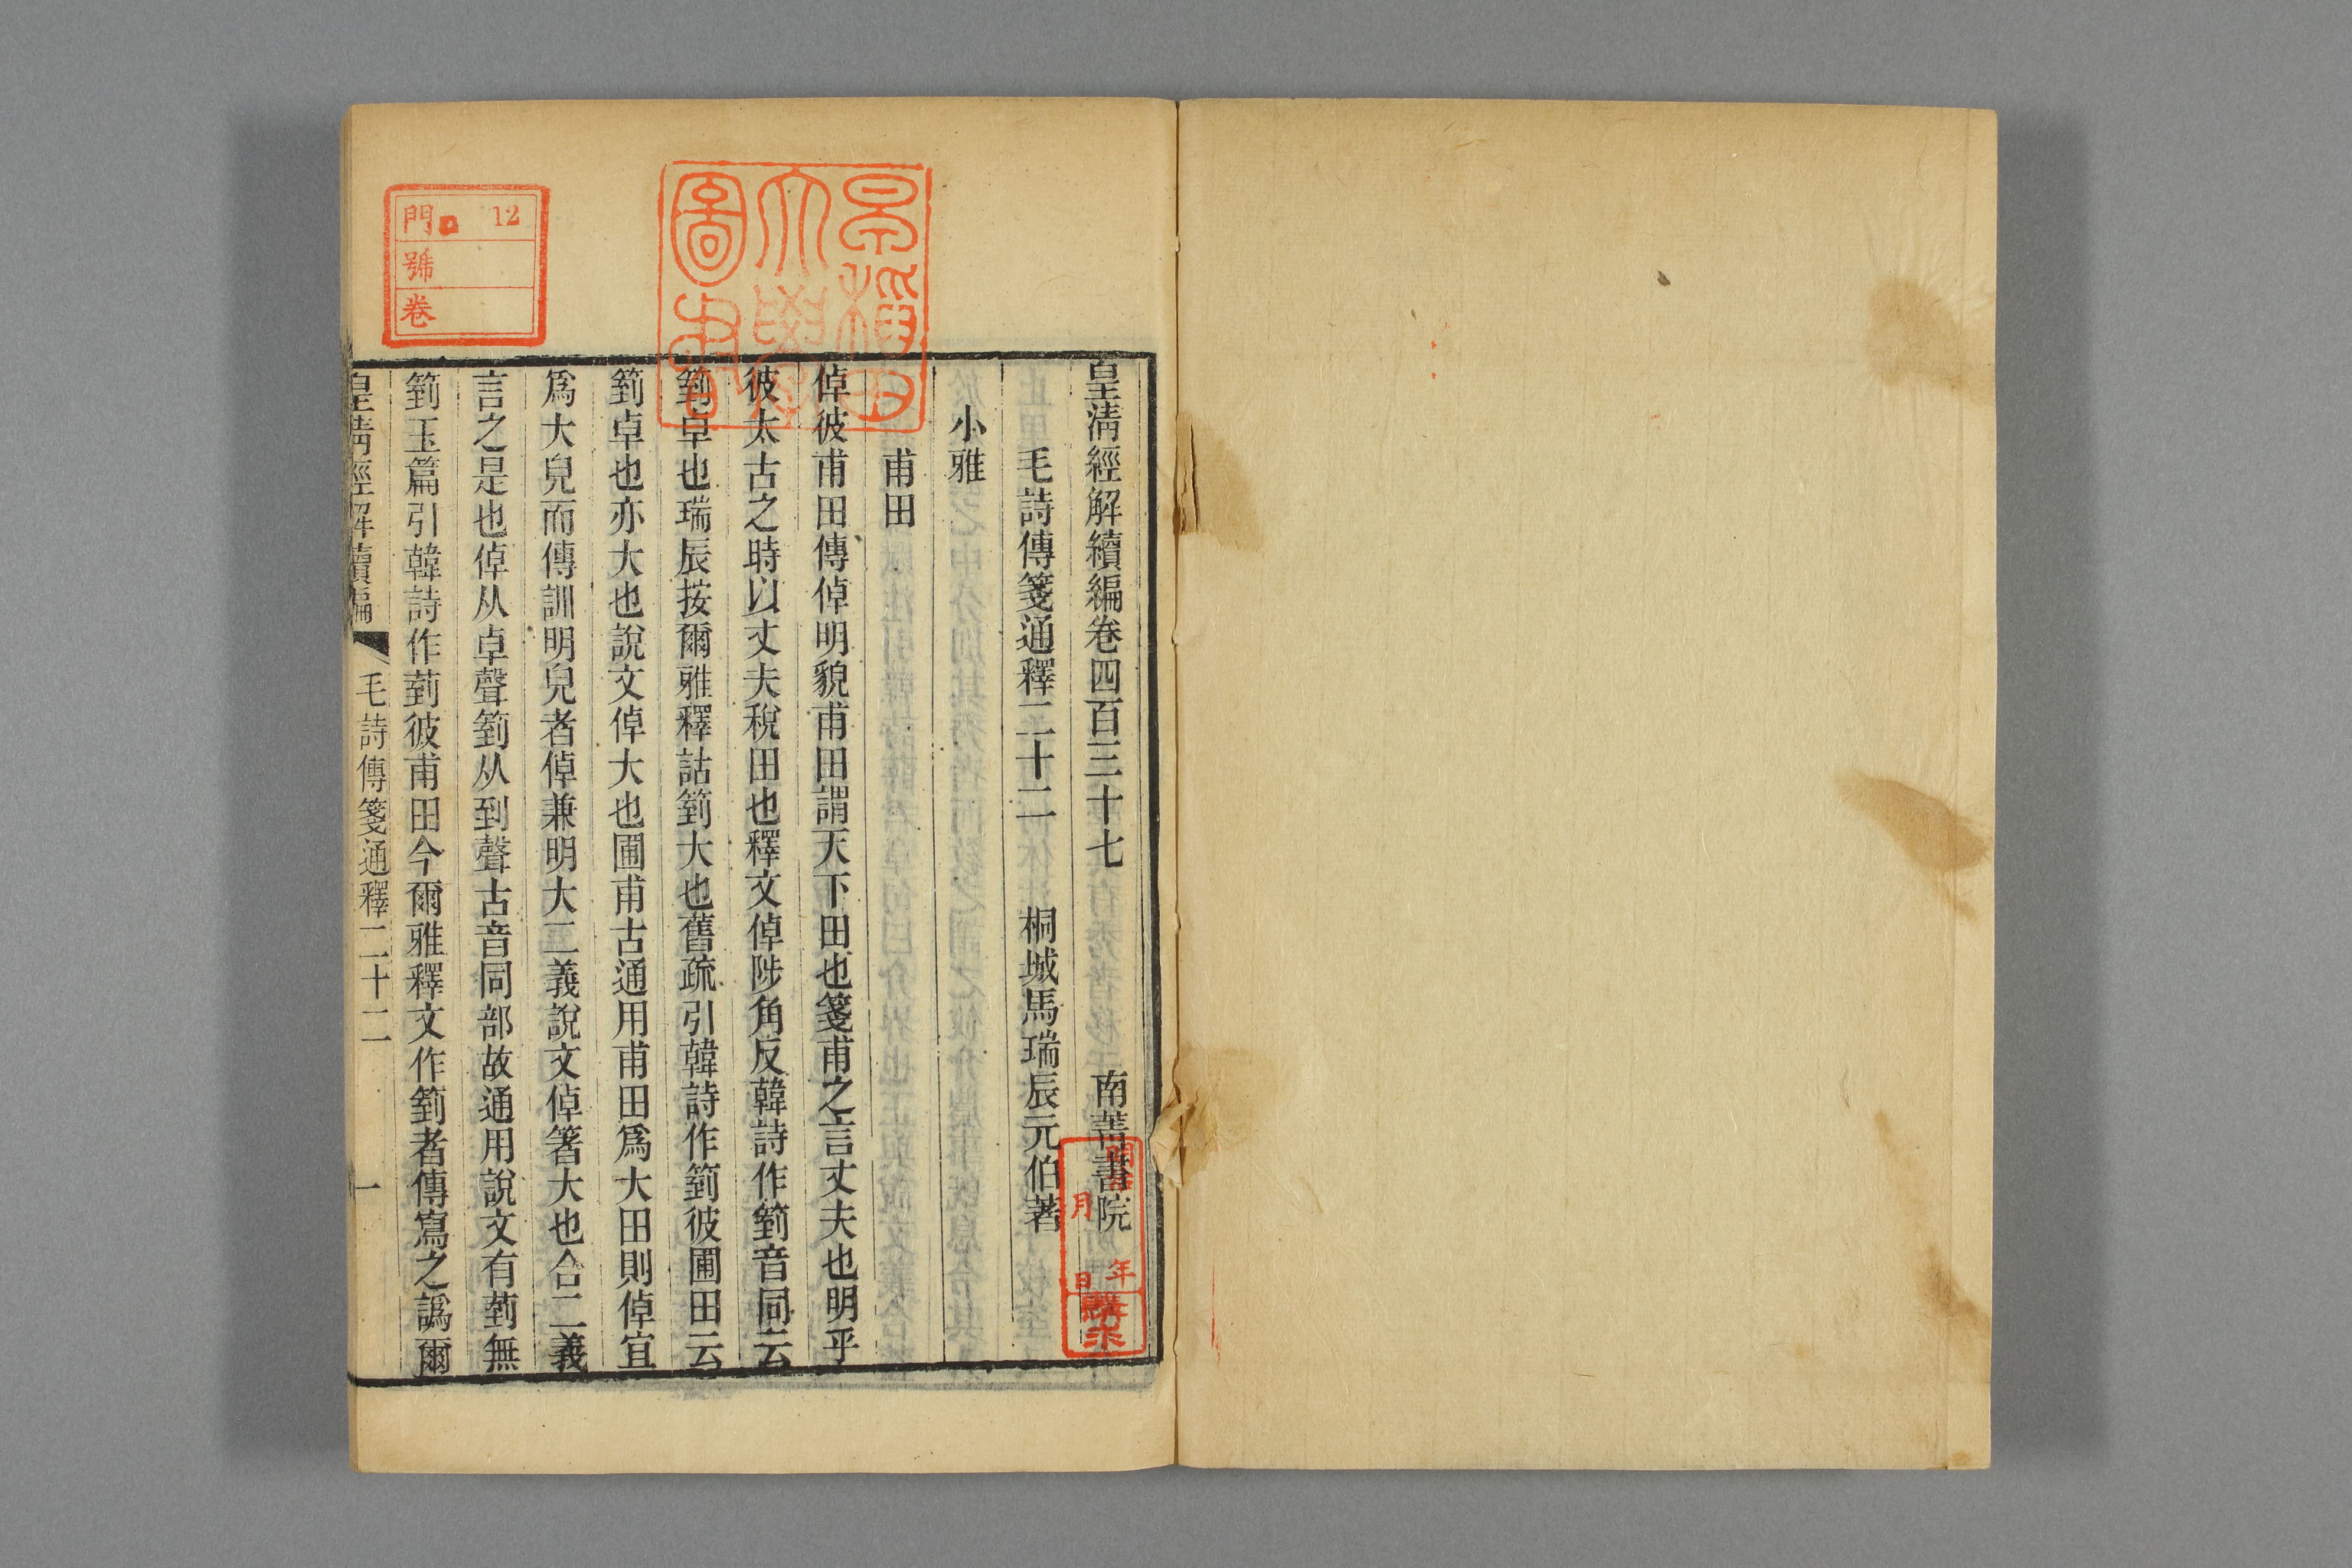 皇清經解續編卷四百三十七　南菁書院
毛詩傳箋通釋二十二　桐城馬瑞辰元伯著
小雅
甫田
倬彼甫田傳倬明貌甫田謂天下田也箋甫之言丈夫也明乎
彼太古之時以丈夫稅田也釋文倬陟角反韓詩作箌音同云
箌卓也瑞辰按爾雅釋詁箌大也舊疏引韓詩作箌彼圃田云
箌卓也亦大也說文倬大也圃甫古通用甫田爲大田則倬宜
爲大皃而傳訓明皃者倬兼明大二義說文倬箸大也合二義
言之是也倬从卓聲箌从到聲古音同部故通用說文有菿無
箌玉篇引韓詩作菿彼甫田今爾雅釋文作箌者傳寫之譌爾
皇清經解續編　毛詩傳箋通釋二十二　一
12
門
號
卷
早稻田
大學
圖書
年
月
日
購求